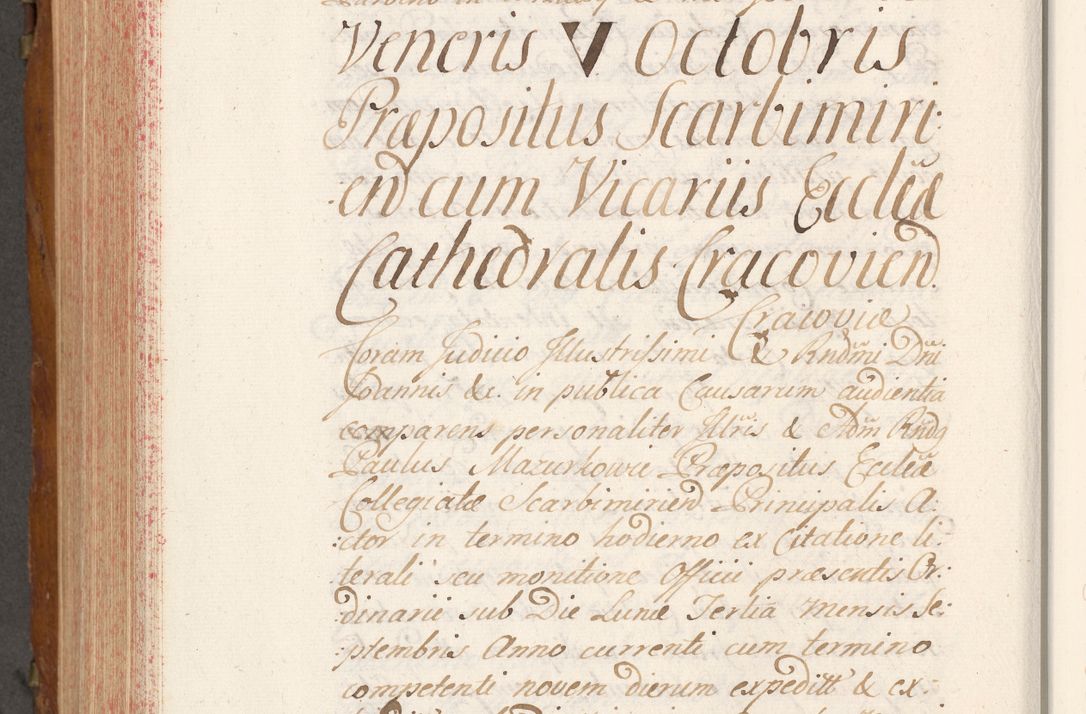 Veneris V Octobris
Præpositus Scarbimiri:
:end cum Vicariis Eccl̃iæ
Cathedralis Cracoviend.
Cracoviæ
Coram Judicio Illustrissimi & Rndm̃i Dñi
Joannis &c. in publica Causarum audientia
comparens personaliter Illris & Adm̃ Rñdq
Paulus Mazurkowic Præpositus Eccl̃iæ
Collegiatæ Scarbimiriend Principalis A:
:ctor in termino hodierno ex Citatione li:
terali seu monitione Officii præsentis Or:
dinarii sub Die Lunæ Tertia mensis Se:
:ptembris Anno currenti cum termino
competenti novem dierum expeditt & ex: